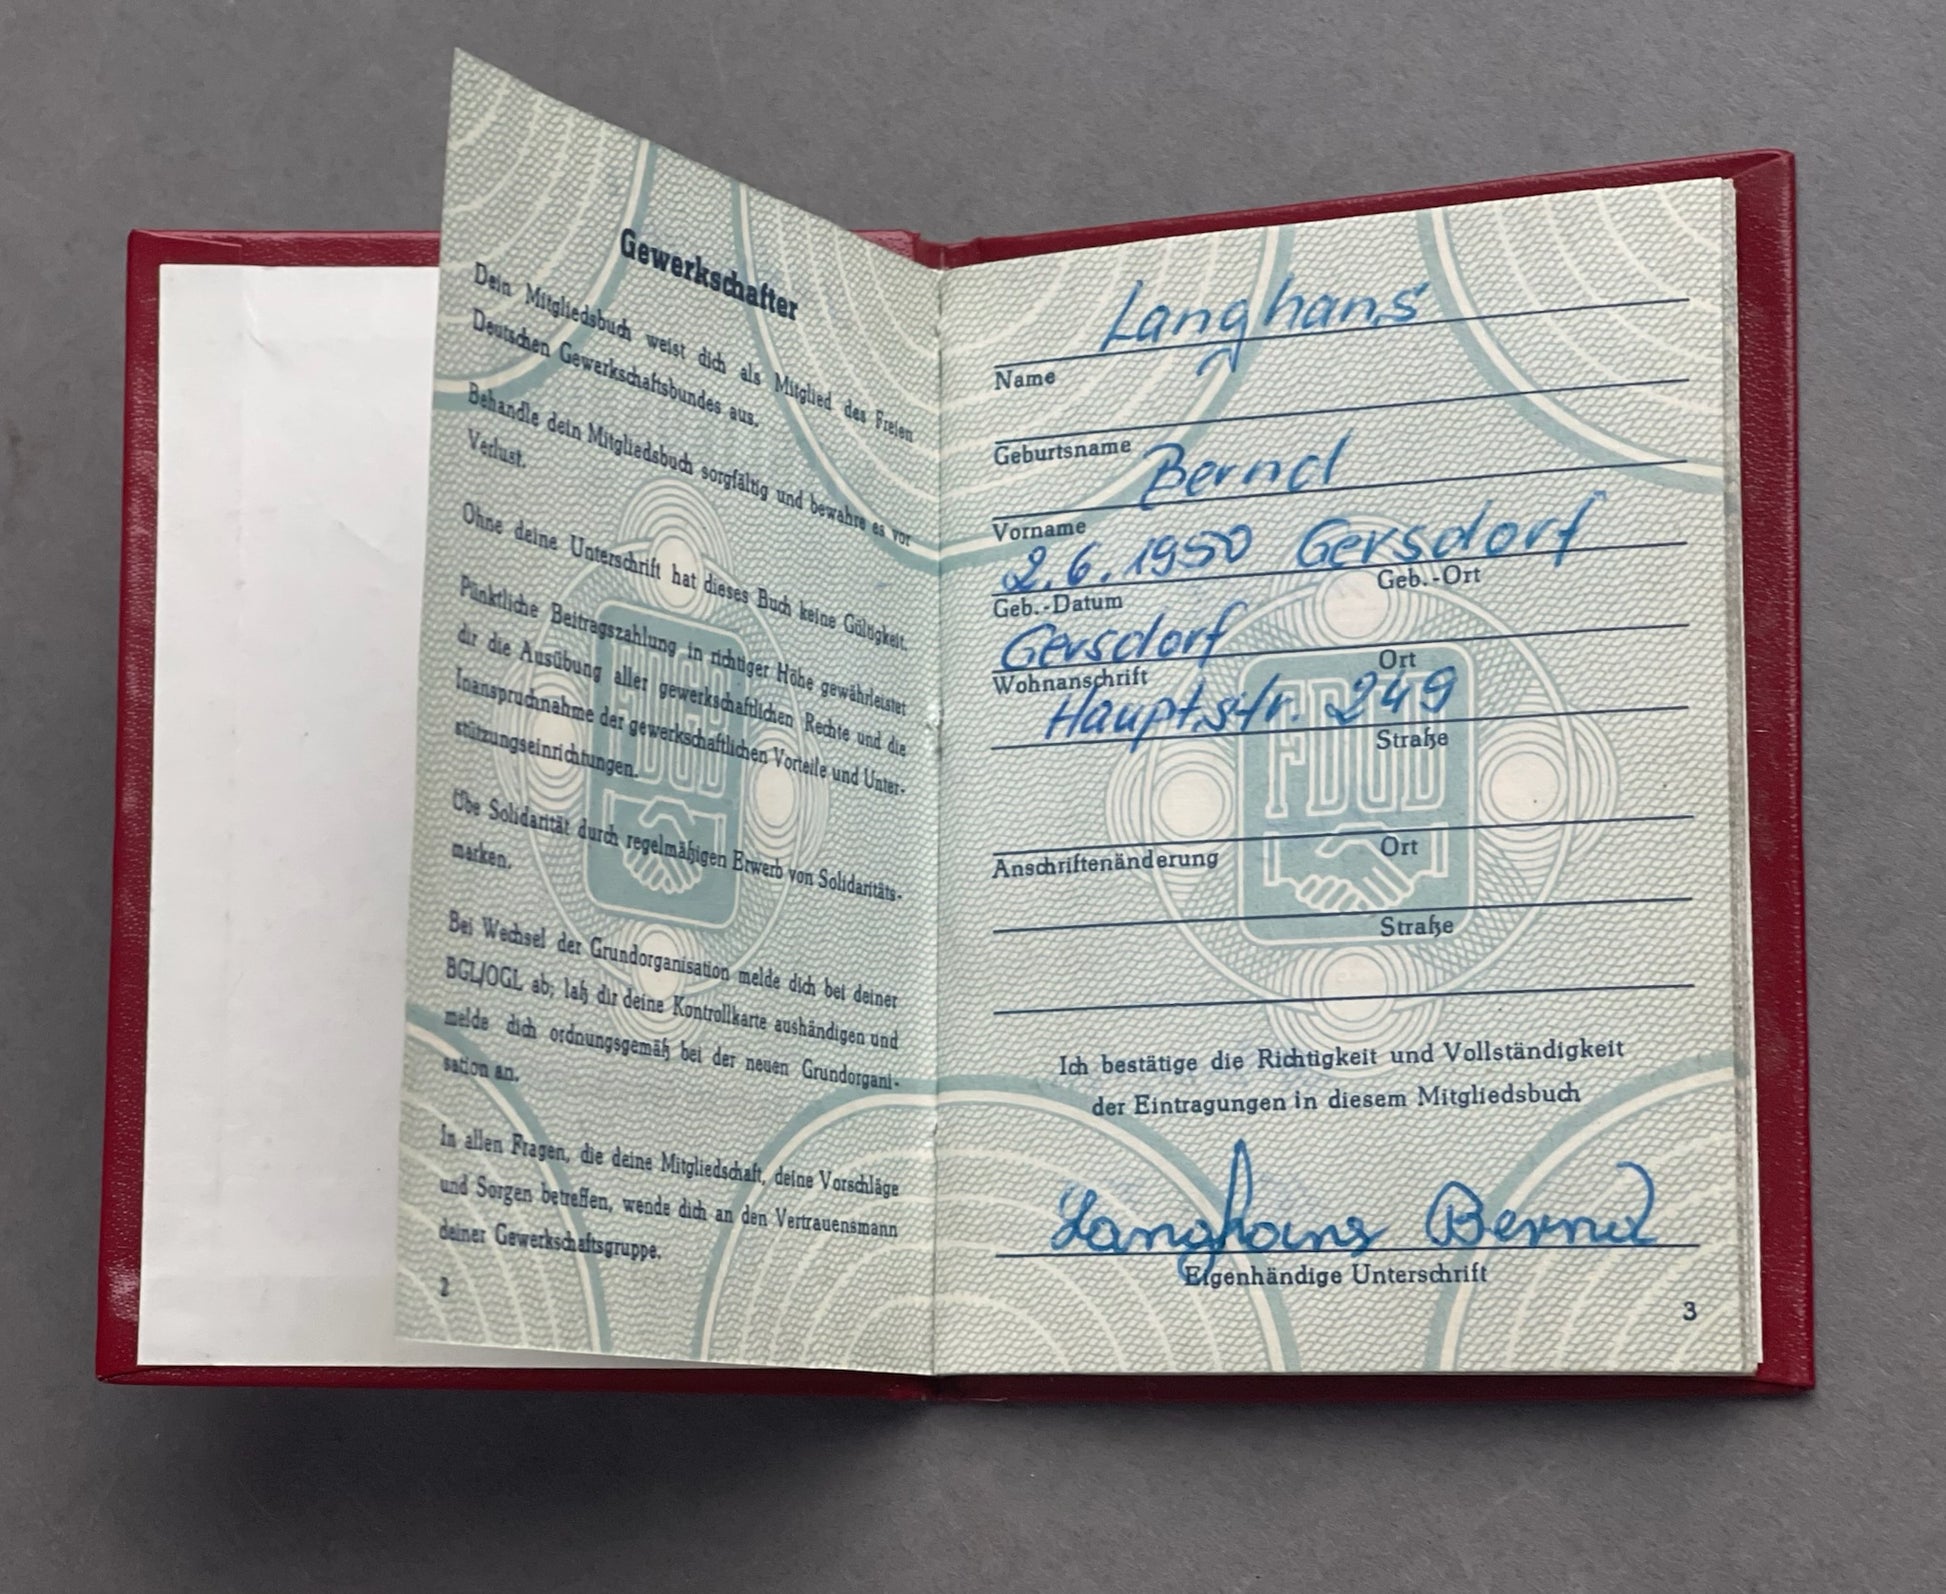 Gewerkschafter
Dein Mitgliedsbuch weist dich als Mitglied des Freien
Deutschen Gewerkschaftsbundes aus.
Behandle dein Mitgliedsbuch sorgfältig und bewahre es vor
Verlust.
Ohne deine Unterschrift hat dieses Buch keine Gültigkeit.
Pünktliche Beitragszahlung in richtiger Höhe gewährleistet
dir die Ausübung aller gewerkschaftlichen Rechte und die
Inanspruchnahme der gewerkschaftlichen Vorteile und Unter-
stützungseinrichtungen.
Übe Solidarität durch regelmäßigen Erwerb von Solidaritäts-
marken.
Bei Wechsel der Grundorganisation melde dich bei deiner
BGL/OGL ab; laß dir deine Kontrollkarte aushändigen und
melde dich ordnungsgemäß bei der neuen Grundorgani-
sation an.
In allen Fragen, die deine Mitgliedschaft, deine Vorschläge
und Sorgen betreffen, wende dich an den Vertrauensmann
deiner Gewerkschaftsgruppe.
2
FDGB
Langhans
Name
Geburtsname
Bernd
Vorname
2.6.1950 Gersdorf
Geb.-Datum Geb.-Ort
Gersdorf
Wohnanschrift Ort
Hauptstr. 249
Straße
FDGB
Anschriftenänderung Ort
Straße
Ich bestätige die Richtigkeit und Vollständigkeit
der Eintragungen in diesem Mitgliedsbuch
Langhans Bernd
Eigenhändige Unterschrift
3